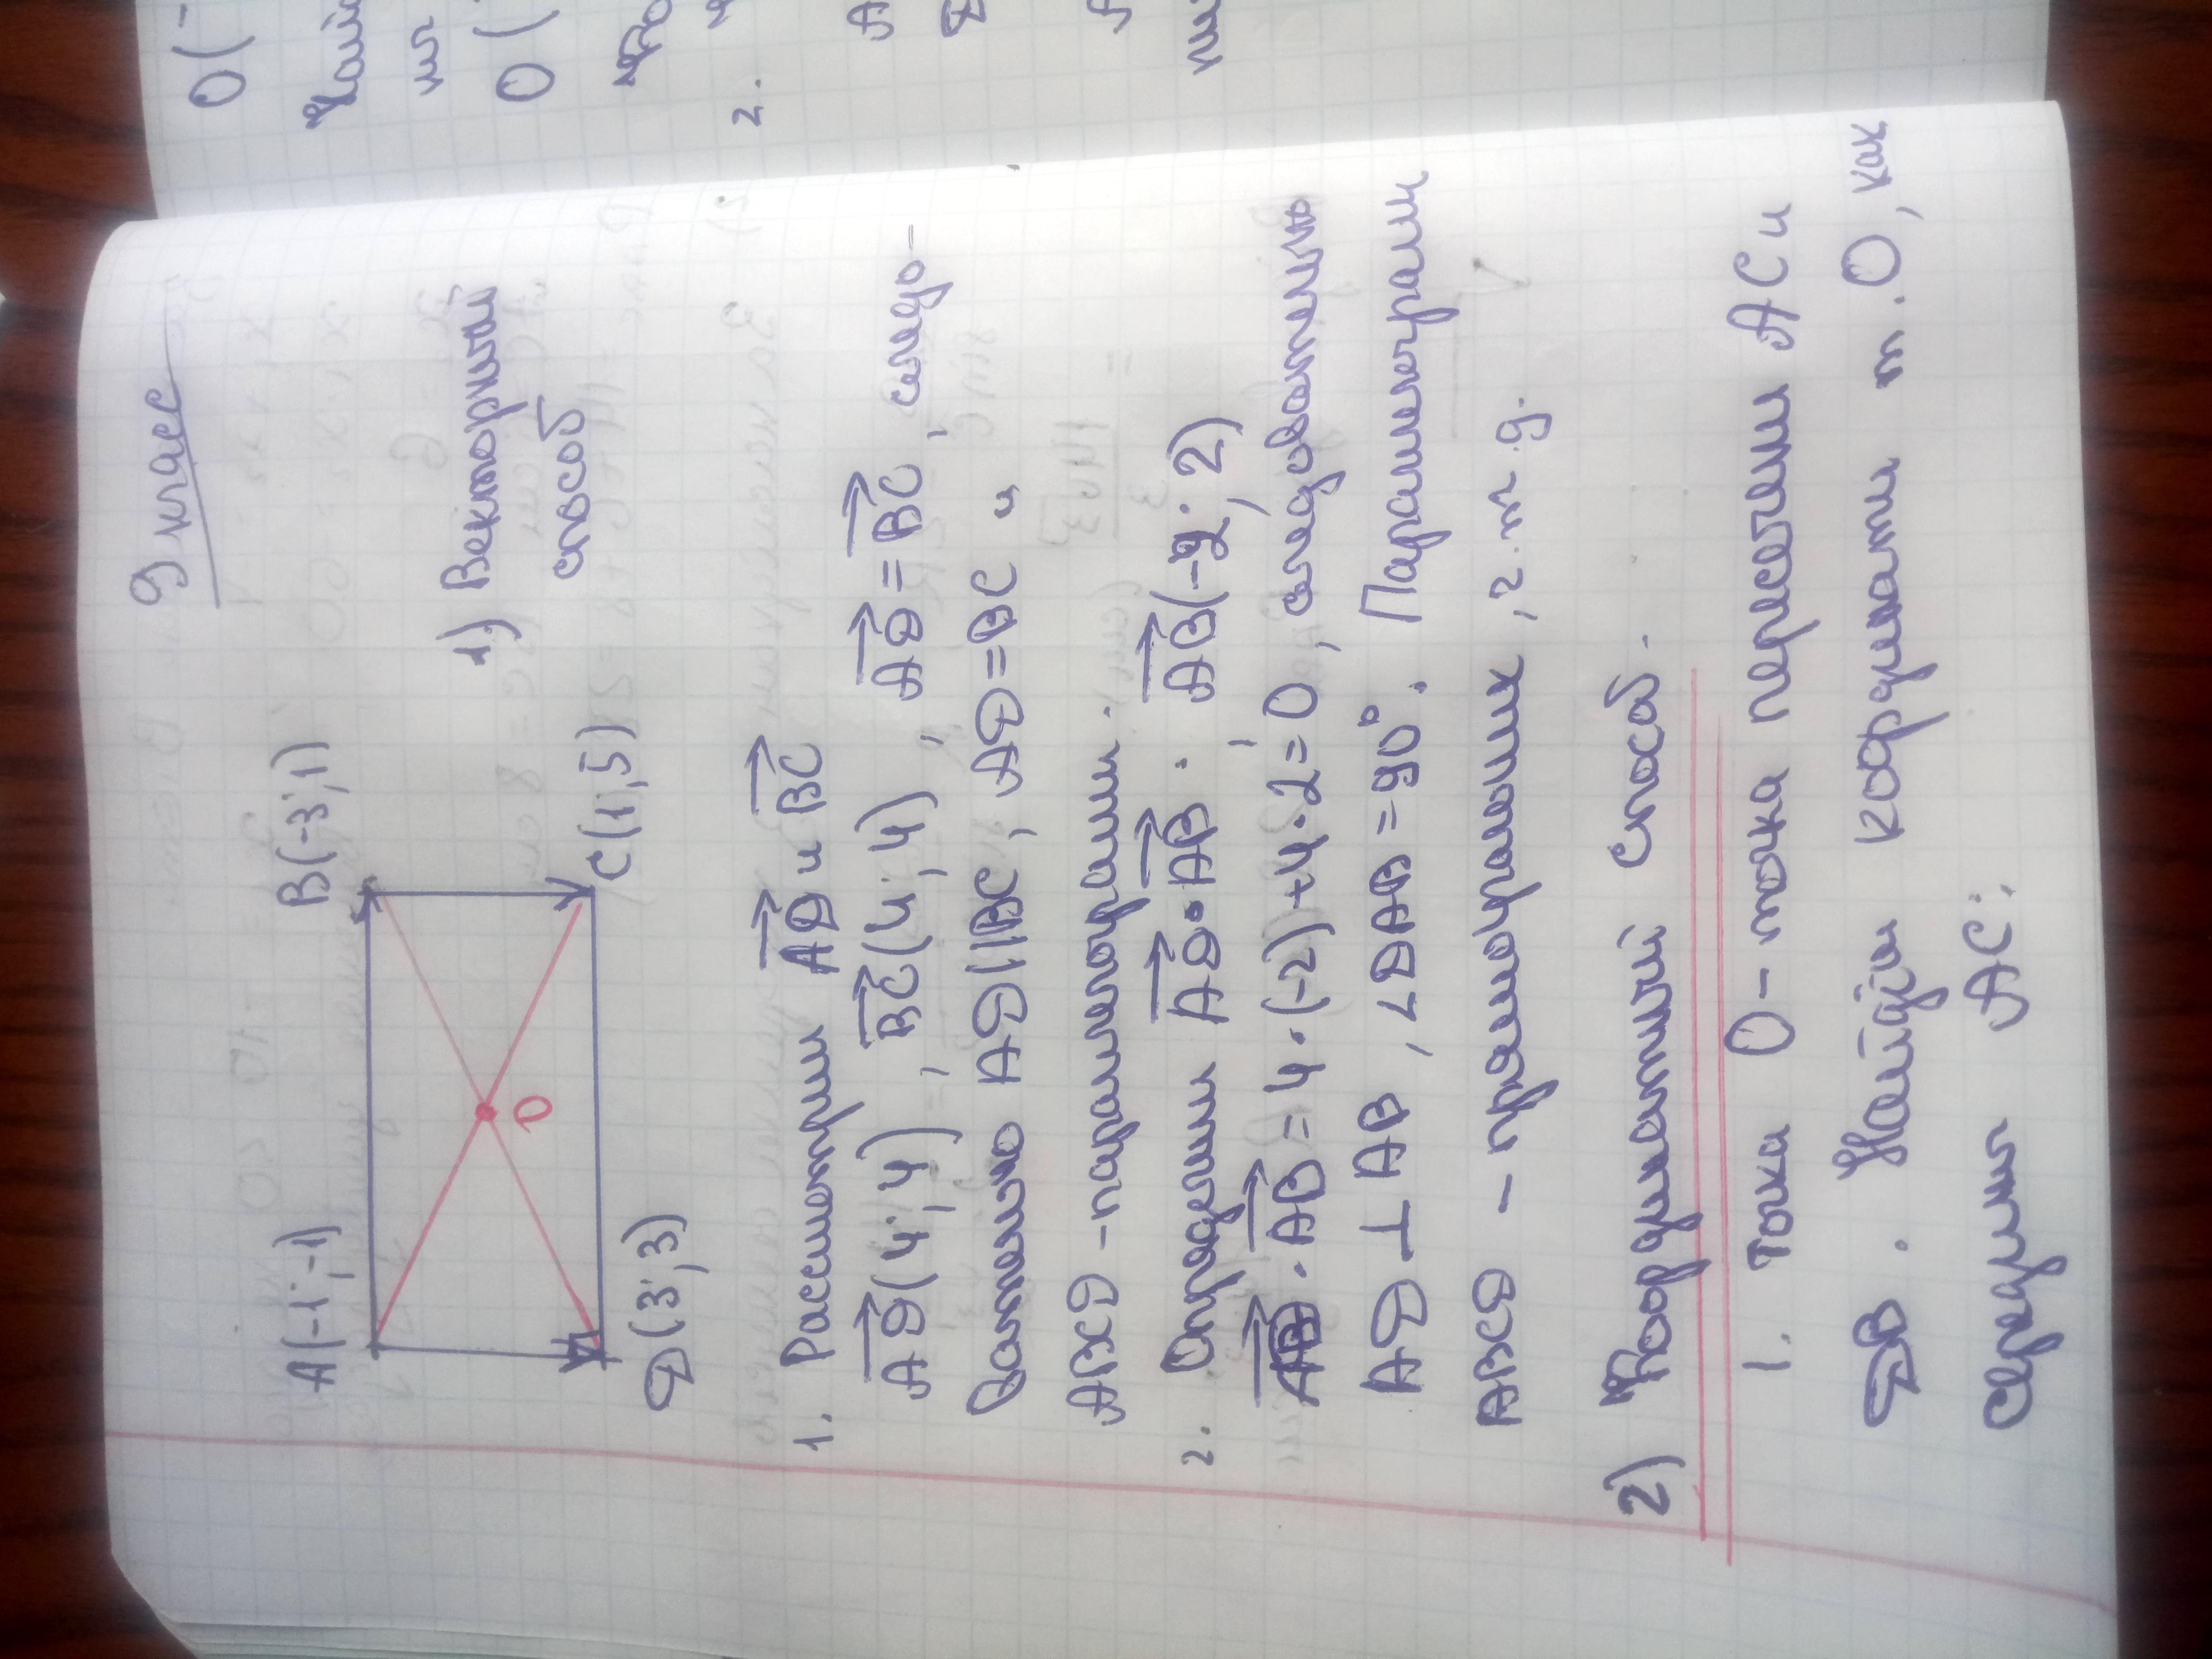 9 класс
A(-1;-1)
B(-3;1)
1) Векторный
способ
O
D(3;3)
C(1;5)
1. Рассмотрим AD и BC
AD(4;4), BC(4;4), AD=BC, следо-
вательно AD||BC, AD=BC и
ABCD - параллелограмм.
2. Определим AD•AB. AB(-2;2)
AD·AB=4·(-2)+4·2=0, следовательно
AD⊥BA, ∠DAB=90°. Параллелограмм
ABCD - прямоугольник, ч.т.д.
2) Координатный способ.
1. Точка O - точка пересечен AC и
DB. Найдём координаты т.O, как
середины AC:
O(-
Найд
O(
2.